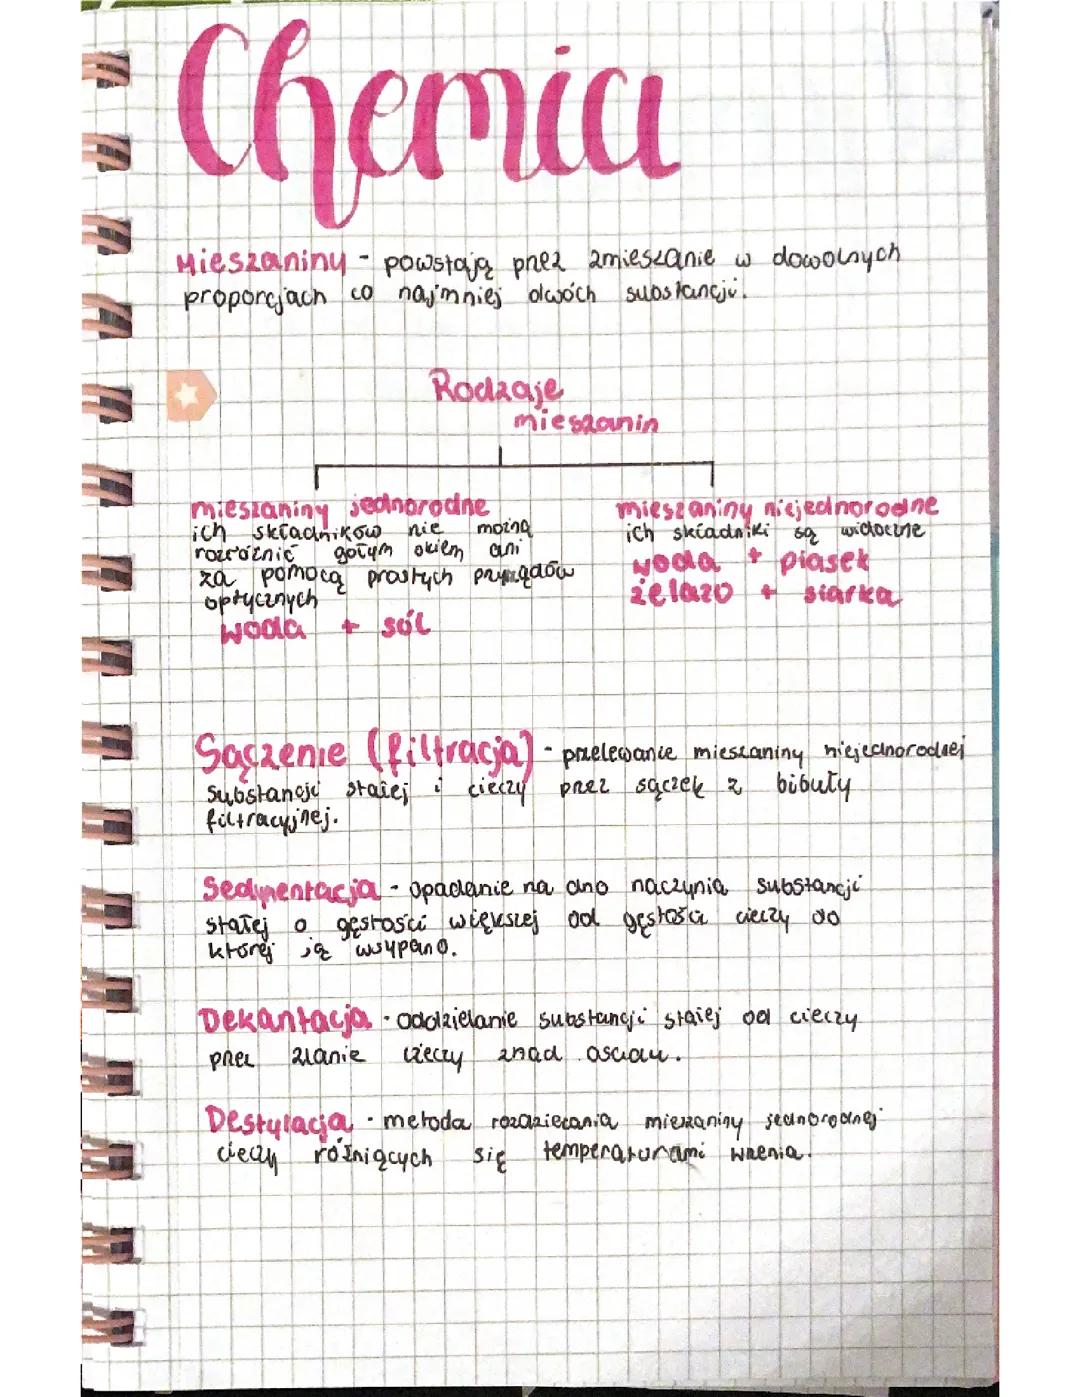 Chemia
Mieszaniny - powstają przez zmieszanie w dowolnych
proporcjach co najmniej dwóch substancji.
Rodzaje
mieszanin
mieszaniny jednorodne
ich składników nie można
rozróżnić gołym okiem ani
za pomocą prostych przyrządów
optycznych
woda + sól
mieszaniny niejednorodne
ich składniki są widoczne
woda + piasek
żelazo + siarka
Sączenie (filtracja) - przelewanie mieszaniny niejednorodnej
substancji stałej i cieczy przez sączek z bibuły
filtracyjnej.
Sedymentacja - opadanie na dno naczynia substancji
stałej o gęstości większej od gęstości cieczy do
której ją wsypano.
Dekantacja - oddzielanie substancji stałej od cieczy
przez zlanie cieczy znad osadu.
Destylacja - metoda rozdzielania mieszaniny jednorodnej
cieczy różniących się temperaturami wrzenia.